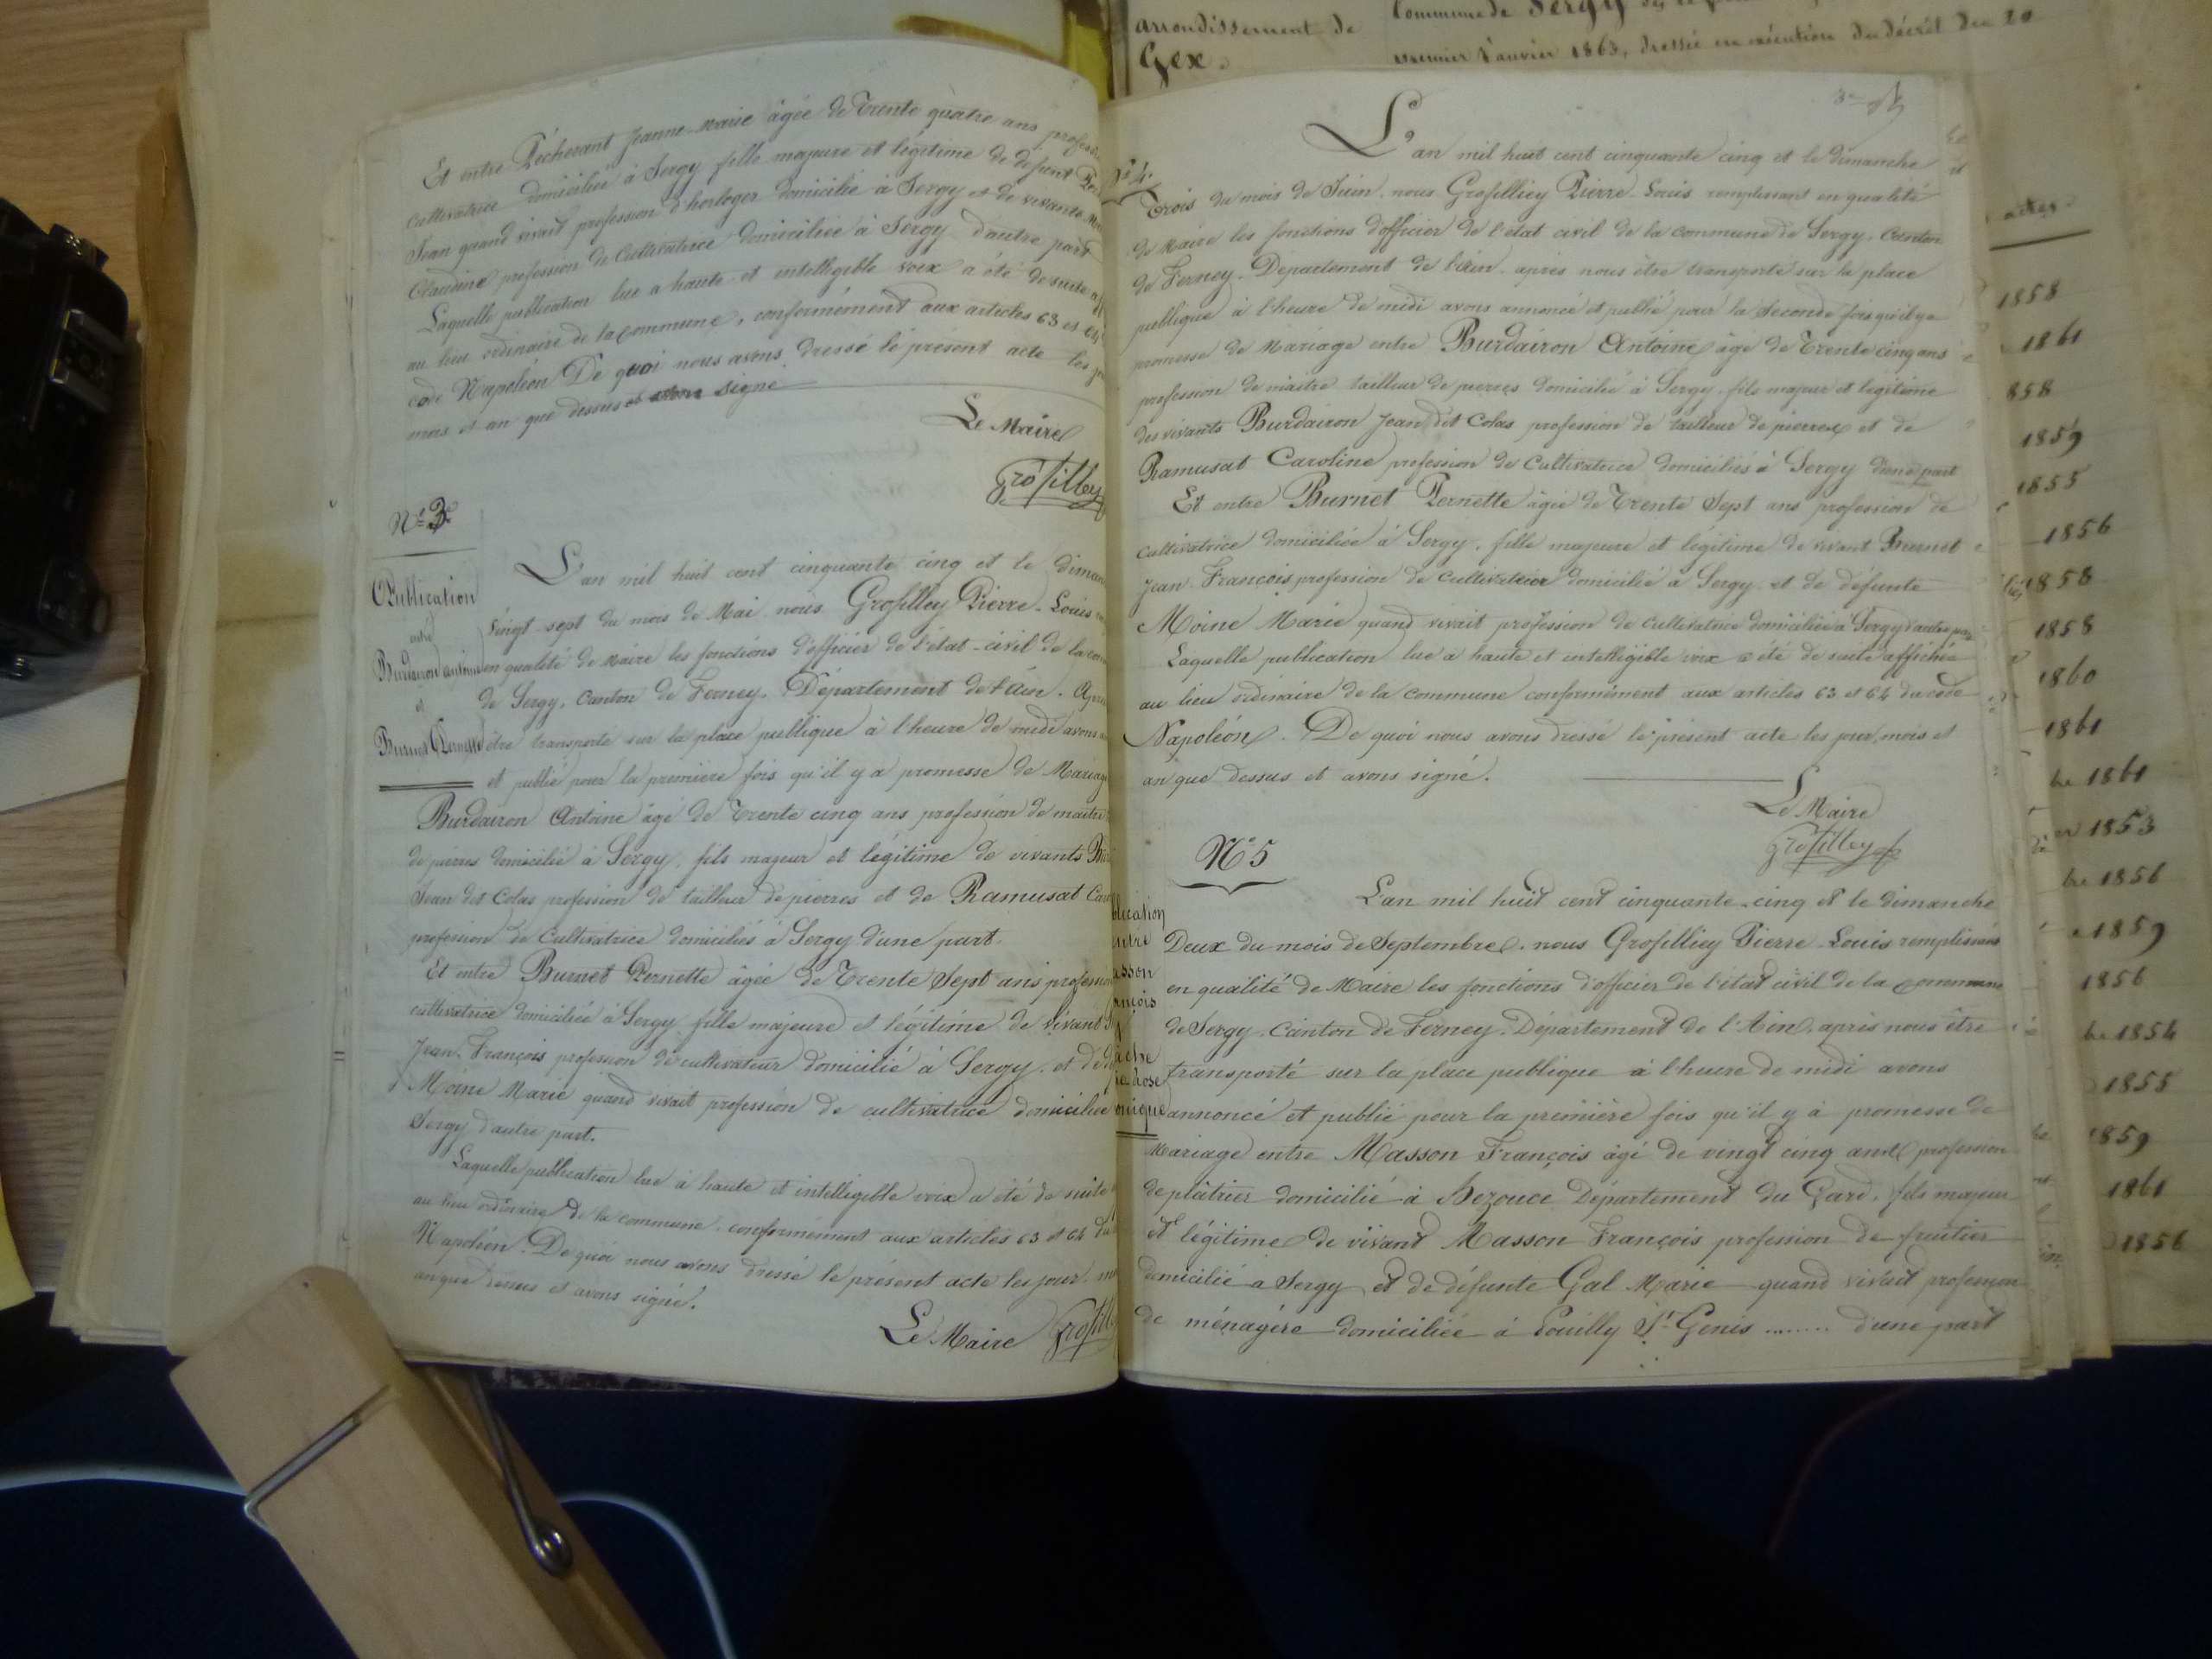 Et entre Pécherant Jeanne-Marie âgée de Trente quatre ans profession
cultivatrice domiciliée à Sergy fille majeure et légitime de défunt
Jean quand vivait profession d'horloger domicilié à Sergy et de vivante
Claudine profession de Cultivatrice domiciliée à Sergy d'autre part
Laquelle publication lue a haute et intelligible voix a été de suite
au lieu ordinaire de la commune, conformément aux articles 63 et 64
code Napoléon De quoi nous avons dressé le présent acte les
mois et an que dessus et avons signé
Le Maire
Grosfilley
N° 3
Publication
entre
Burdairon antoine
et
Burnet Pernette
L'an mil huit cent cinquante cinq et le diman
vingt-sept du mois de Mai nous Grosfilley Pierre-Louis
en qualité de Maire les fonctions d'officier de l'état-civil de la com
de Sergy, Canton de Ferney, Département de l'Ain. Après
être transporté sur la place publique à l'heure de midi avons
et publié pour la première fois qu'il y a promesse de Mariage
Burdairon Antoine âgé de Trente cinq ans profession de maître
de pierres domicilié à Sergy, fils majeur et légitime de vivants
Jean dit Colas profession de tailleur de pierres et de Ramusat
profession de Cultivatrice domiciliés à Sergy d'une part.
Et entre Burnet Pernette âgée de Trente Sept ans profession
cultivatrice domiciliée à Sergy, fille majeure et légitime de vivant
Jean-François profession de cultivateur domicilié à Sergy. et de
Moine Marie quand vivait profession de cultivatrice domiciliée
Sergy d'autre part.
Laquelle publication lue à haute et intelligible voix a été de suite
au lieu ordinaire de la commune. conformément aux articles 63 et 64 du
Napoléon. De quoi nous avons dressé le présent acte les jour,
an que dessus et avons signé.
Le Maire
arrondissement de
Gex.
Commune de Sergy
premier Janvier 1863, dressée en exécution du décret du 20
N° 4.
L'an mil huit cent cinquante cinq et le dimanche
Trois du mois de Juin. nous Grosfilliey Pierre-Louis remplissant en qualité
de Maire les fonctions d'officier de l'état civil de la commune de Sergy. Canton
de Ferney. Département de l'Ain. après nous être transporté sur la place
publique à l'heure de midi avons annoncé et publié pour la Seconde fois qu'il y a
promesse de Mariage entre Burdairon Antoine âgé de Trente cinq ans
profession de maître tailleur de pierres domicilié à Sergy. fils majeur et légitime
des vivants Burdairon Jean dit Colas profession de tailleur de pierres et de
Ramusat Caroline profession de Cultivatrice domiciliés à Sergy d'une part
Et entre Burnet Pernette âgée de Trente Sept ans profession de
cultivatrice domiciliée à Sergy. fille majeure et légitime de vivant Burnet
Jean-François profession de cultivateur domicilié à Sergy. et de défunte
Moine Marie quand vivait profession de cultivatrice domiciliée à Sergy d'autre part
Laquelle publication lue a haute et intelligible voix a été de suite affichée
au lieu ordinaire de la commune conformément aux articles 63 et 64 du code
Napoléon. De quoi nous avons dressé le présent acte les jour, mois et
an que dessus et avons signé.
Le Maire
Grosfilley
N° 5
blication
entre
asson
ançois
et
ie Rose
onique
L'an mil huit cent cinquante-cinq et le dimanche
Deux du mois de Septembre. nous Grosfilliey Pierre-Louis remplissant
en qualité de Maire les fonctions d'officier de l'état civil de la commune
de Sergy. Canton de Ferney. Département de l'Ain. après nous être
transporté sur la place publique à l'heure de midi avons
annoncé et publié pour la première fois qu'il y à promesse de
Mariage entre Masson François âgé de vingt cinq ans profession
de plâtrier domicilié à Bezouce Département du Gard. fils majeur
et légitime de vivant Masson François profession de fruitier
domicilié a Sergy et de défunte Gal Marie quand vivait profession
de ménagère domiciliée à Pouilly St Genis ........ d'une part
actes.
1858
1861
858
1859
1855
1856
1858
1858
1860
1861
bre 1861
1853
bre 1856
1859
1856
bre 1854
1855
1859
1861
1856